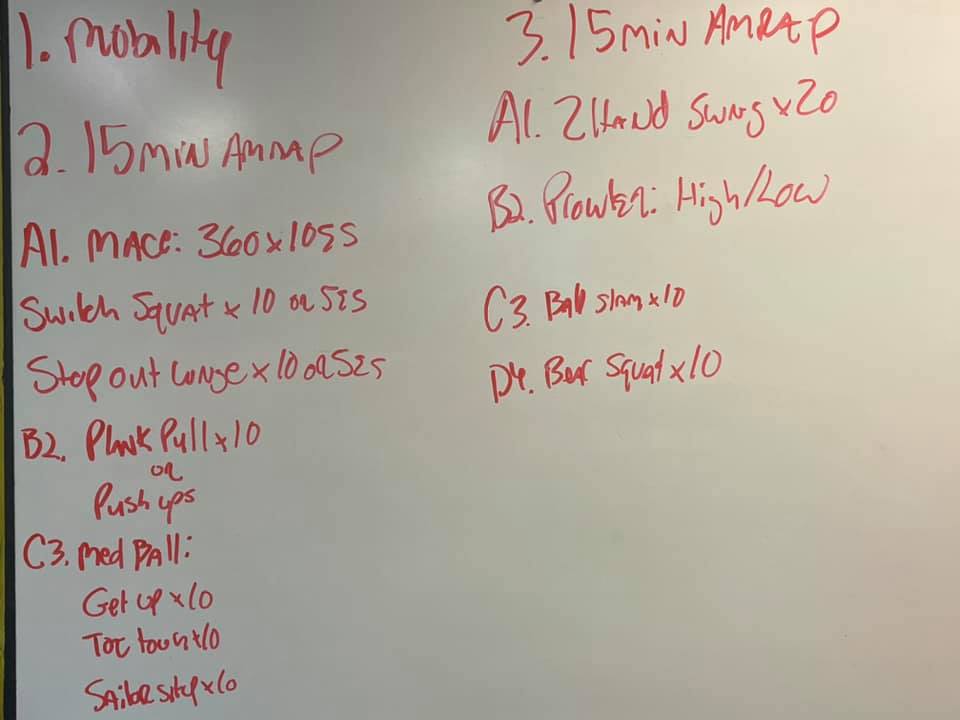 1. Mobility
2. 15min AMRAP
A1. MACE: 360x10ES
Switch Squat x 10 or 5ES
Step out Lunge x 10 or 5ES
B2. Plank Pull x 10
or
Push ups
C3. Med Ball:
Get up x 10
Toe touch x 10
Sailor situp x 10
3. 15min AMRAP
A1. 2 HAND Swing x 20
B2. Prowler: High/Low
C3. Ball slam x 10
D4. Bear Squat x 10